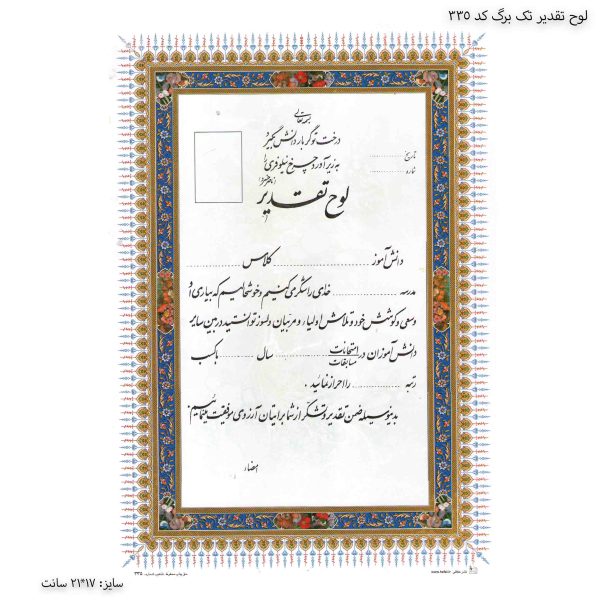 لوح تقدیر تک برگ کد ۳۳۵
بسمه تعالی
درخت تو گر بار دانش بگیرد
به زیر آورد چرخ نیلوفری را
(ناصر خسرو)
تاریخ ............
شماره ............
لوح تقدیر
دانش آموز .................... کلاس ....................
مدرسه .................... خدای را شکر می کنیم و خوشحالیم که به یاری او
و سعی و کوشش خود و تلاش اولیاء و مربیان دلسوز توانستید در بین سایر
دانش آموزان در امتحانات مسابقات .................... سال .......... با کسب
رتبه .................... را احراز نمائید .
بدینوسیله ضمن تقدیر و تشکر از شما برایتان آرزوی موفقیت مینمائیم.
امضاء
سایز: ۱۷*۲۱ سانت